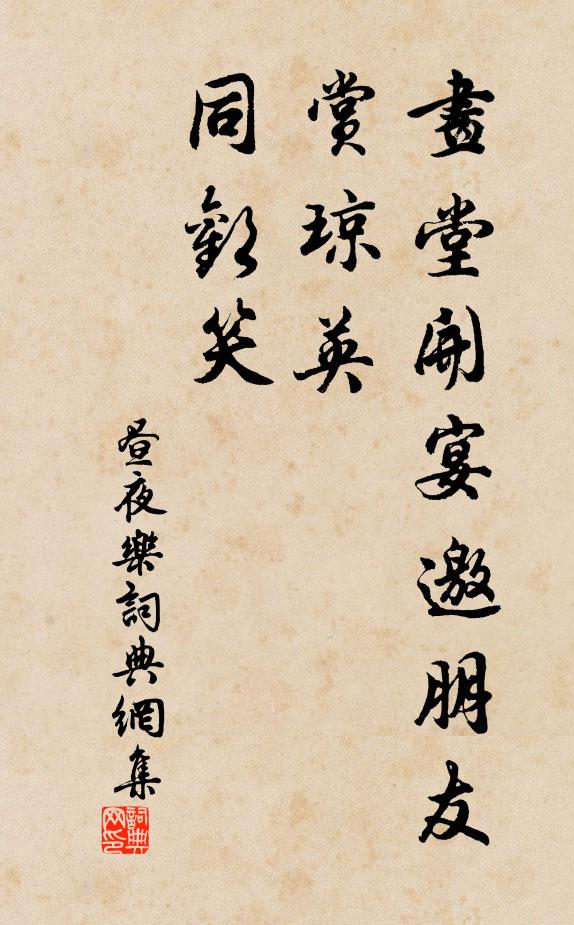 畫堂開宴邀朋友
賞琼英
同歡笑
晝夜樂詞典網集
詞典
网印